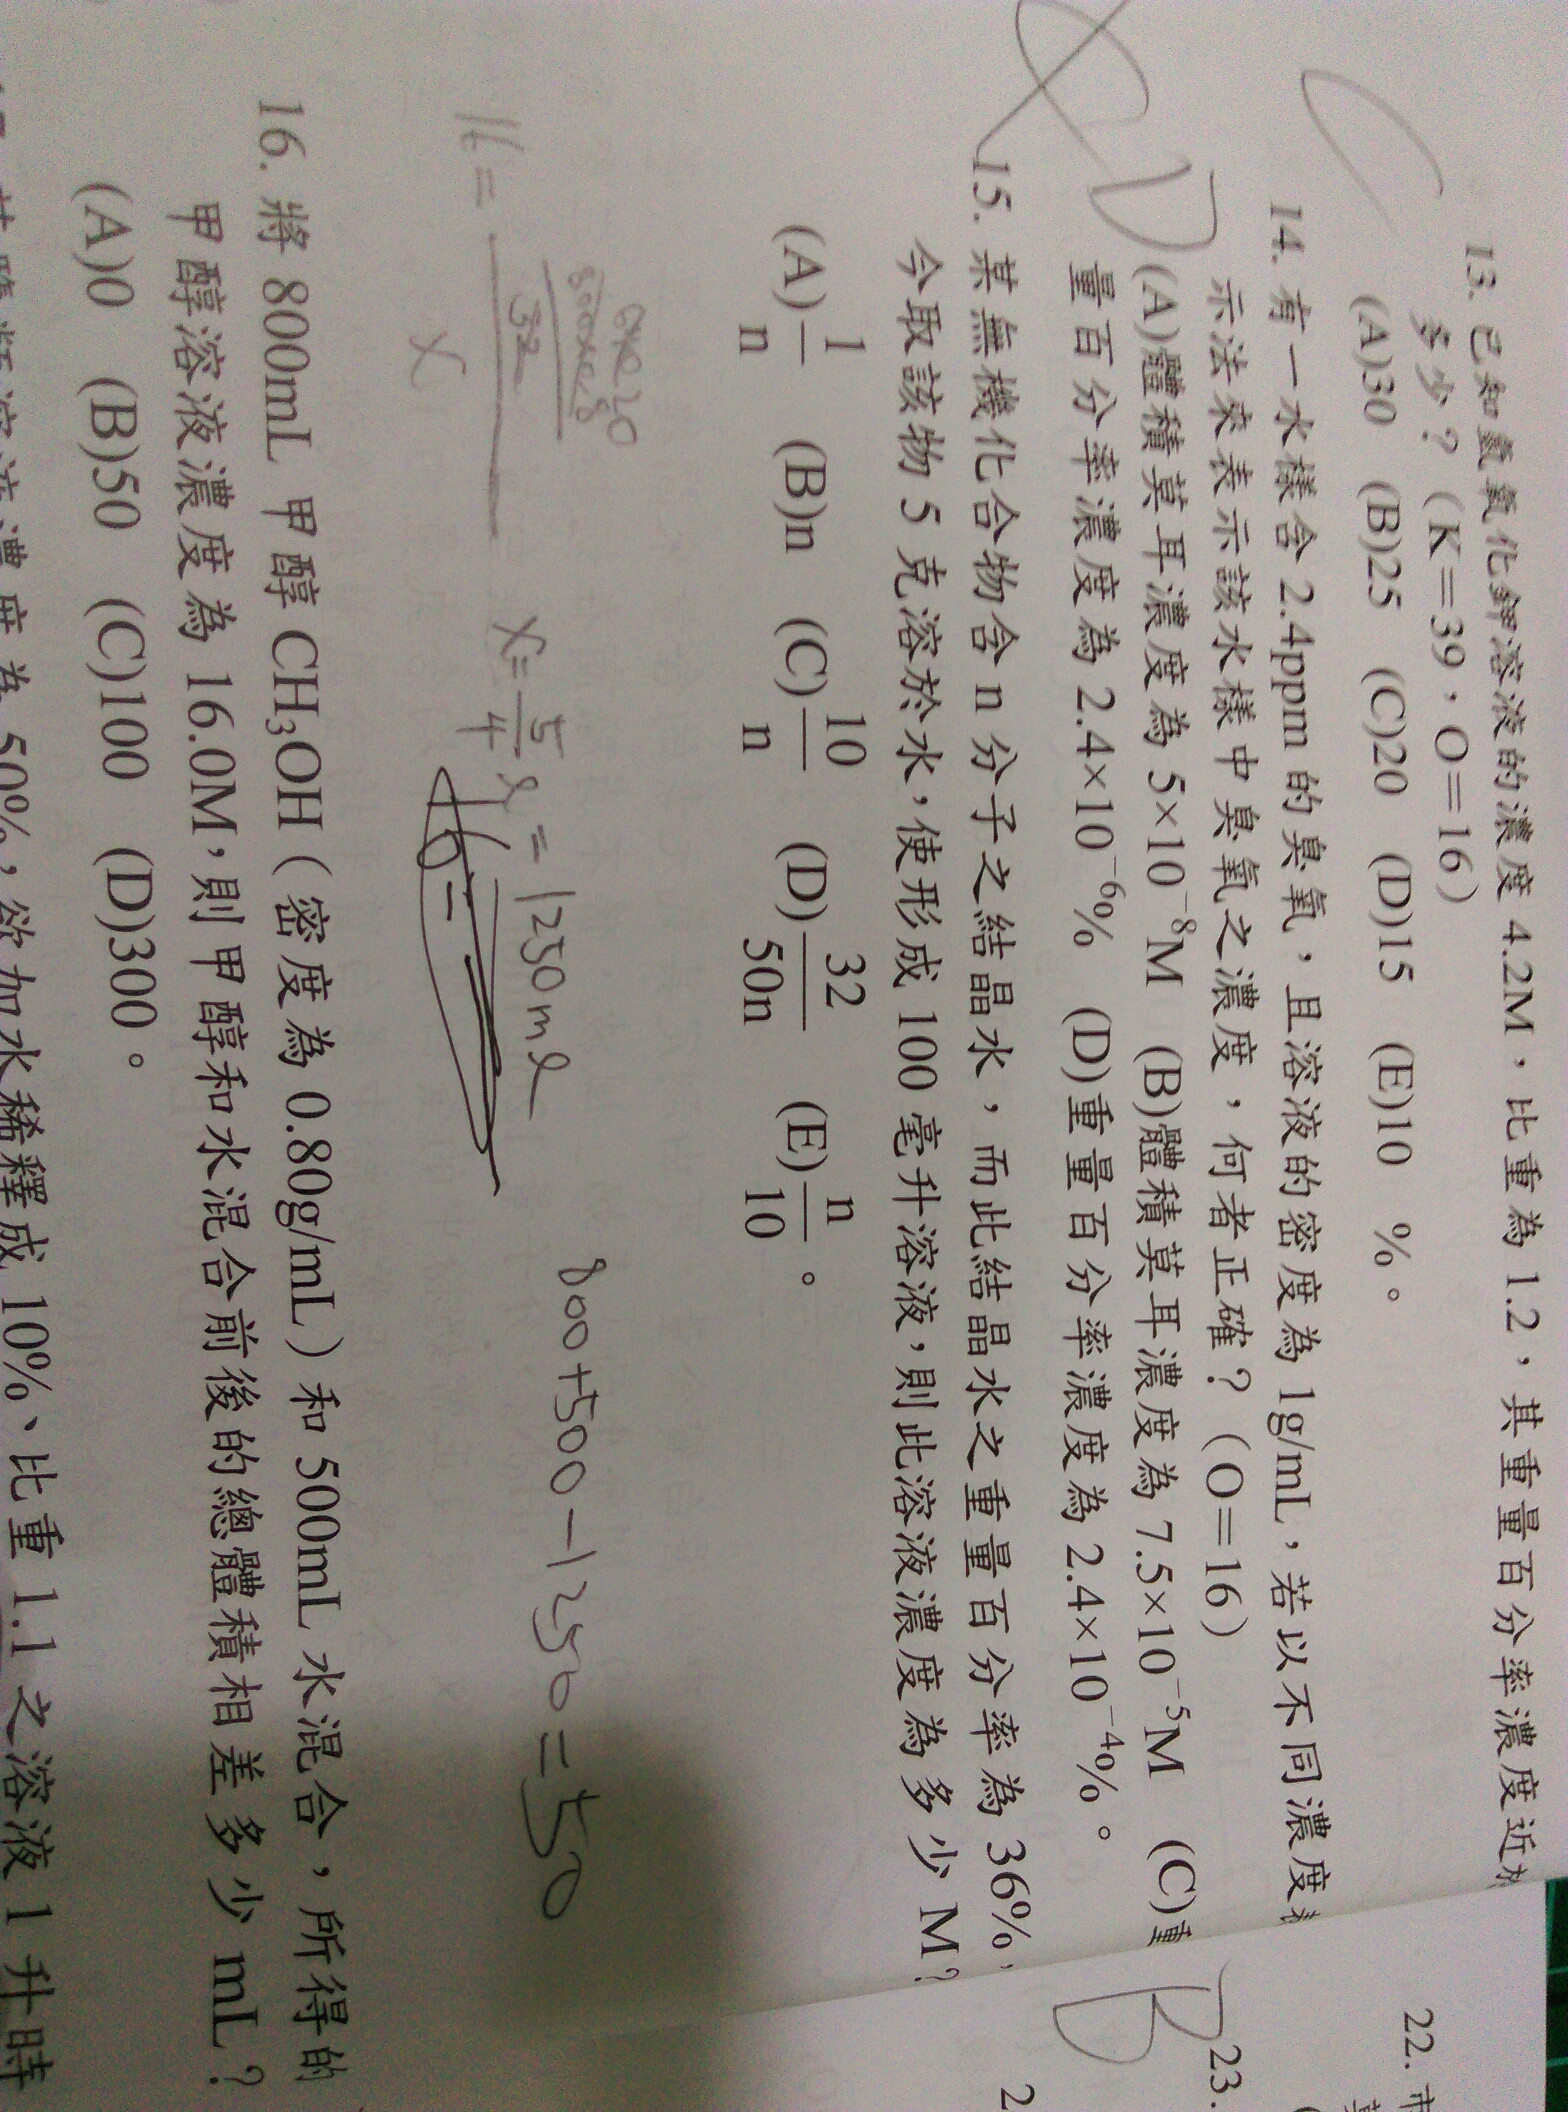 13. 已知氫氧化鉀溶液的濃度 4.2M，比重為 1.2，其重量百分率濃度近
多少？（K＝39，O＝16）
(A)30 (B)25 (C)20 (D)15 (E)10 %。
14. 有一水樣含 2.4ppm 的臭氧，且溶液的密度為 1g/mL，若以不同濃度表
示法來表示該水樣中臭氧之濃度，何者正確？（O＝16）
(A)體積莫耳濃度為 5×10⁻⁸M (B)體積莫耳濃度為 7.5×10⁻⁵M (C)重
量百分率濃度為 2.4×10⁻⁶% (D)重量百分率濃度為 2.4×10⁻⁴%。
D
15. 某無機化合物含 n 分子之結晶水，而此結晶水之重量百分率為 36%，
今取該物 5 克溶於水，使形成 100 毫升溶液，則此溶液濃度為多少 M？
(A)1/n (B)n (C)10/n (D)32/50n (E)n/10。
800×0.8
32
16=
x
x=5/4 ℓ=1250mℓ
800+500-1250=50
16=
16. 將 800mL 甲醇 CH₃OH（密度為 0.80g/mL）和 500mL 水混合，所得的
甲醇溶液濃度為 16.0M，則甲醇和水混合前後的總體積相差多少 mL？
(A)0 (B)50 (C)100 (D)300。
溶液濃度為 50%，欲加水稀釋成 10%、比重 1.1 之溶液 1 升時
22.
B
23.
2